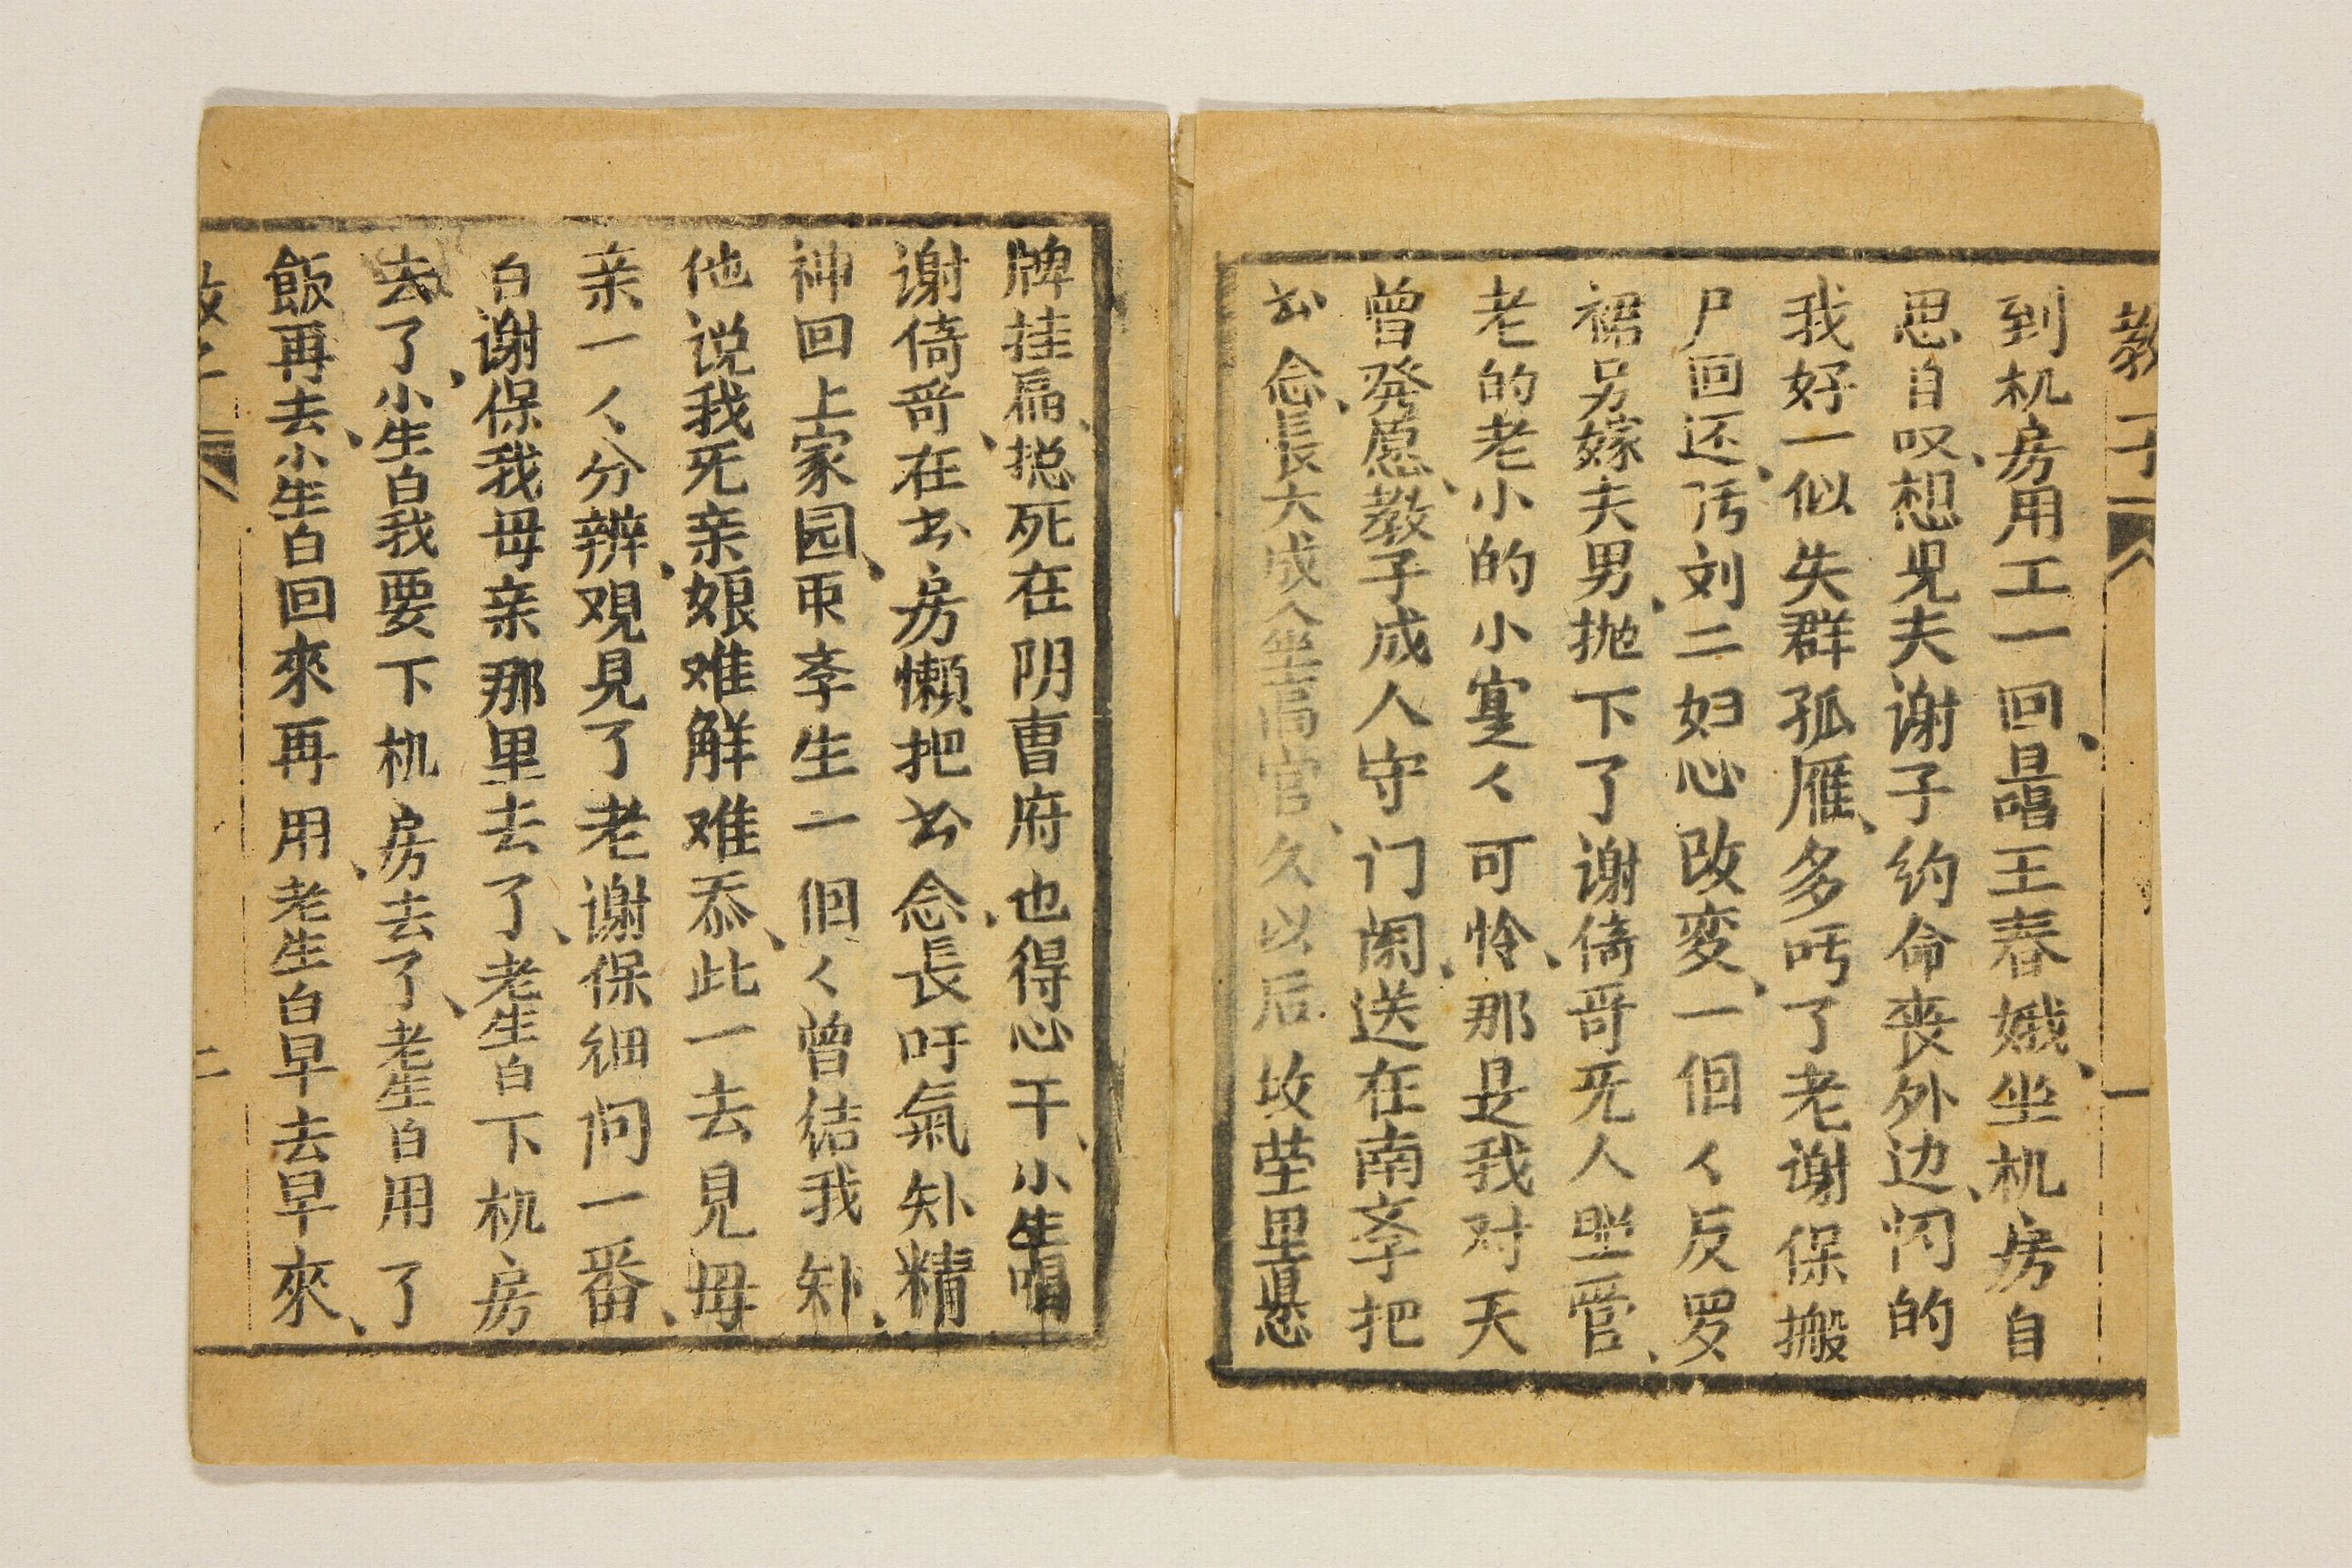 教子 一
到机房用工一回、旦唱王春娥、坐机房自
思自叹、想児夫谢子约命丧外边、闪的
我好一似失群孤雁、多吗了老谢保搬
尸回还、污刘二妇心改变、一個く反罗
裙另嫁夫男、抛下了谢倚哥旡人照管、
老的老小的小寔く可怜、那是我对天
曾発愿、教子成人守门阑、送在南李把
念、長大成人坐高官、久以后坟茔里
牌挂扁、搃死在阴曺府也得心干、小生唱
谢倚哥、在房懒把念、長吁氣精
神回上家园、李生一個く曾结我、
他说我旡亲娘难觧难忝、此一去見母
亲一く分辨、观見了老谢保细问一番、
白谢保我母亲那里去了、老生白下机房
去了、小生白我要下机房去了、老生白用了
飯再去、小生白回來再用、老生白早去早來、
二